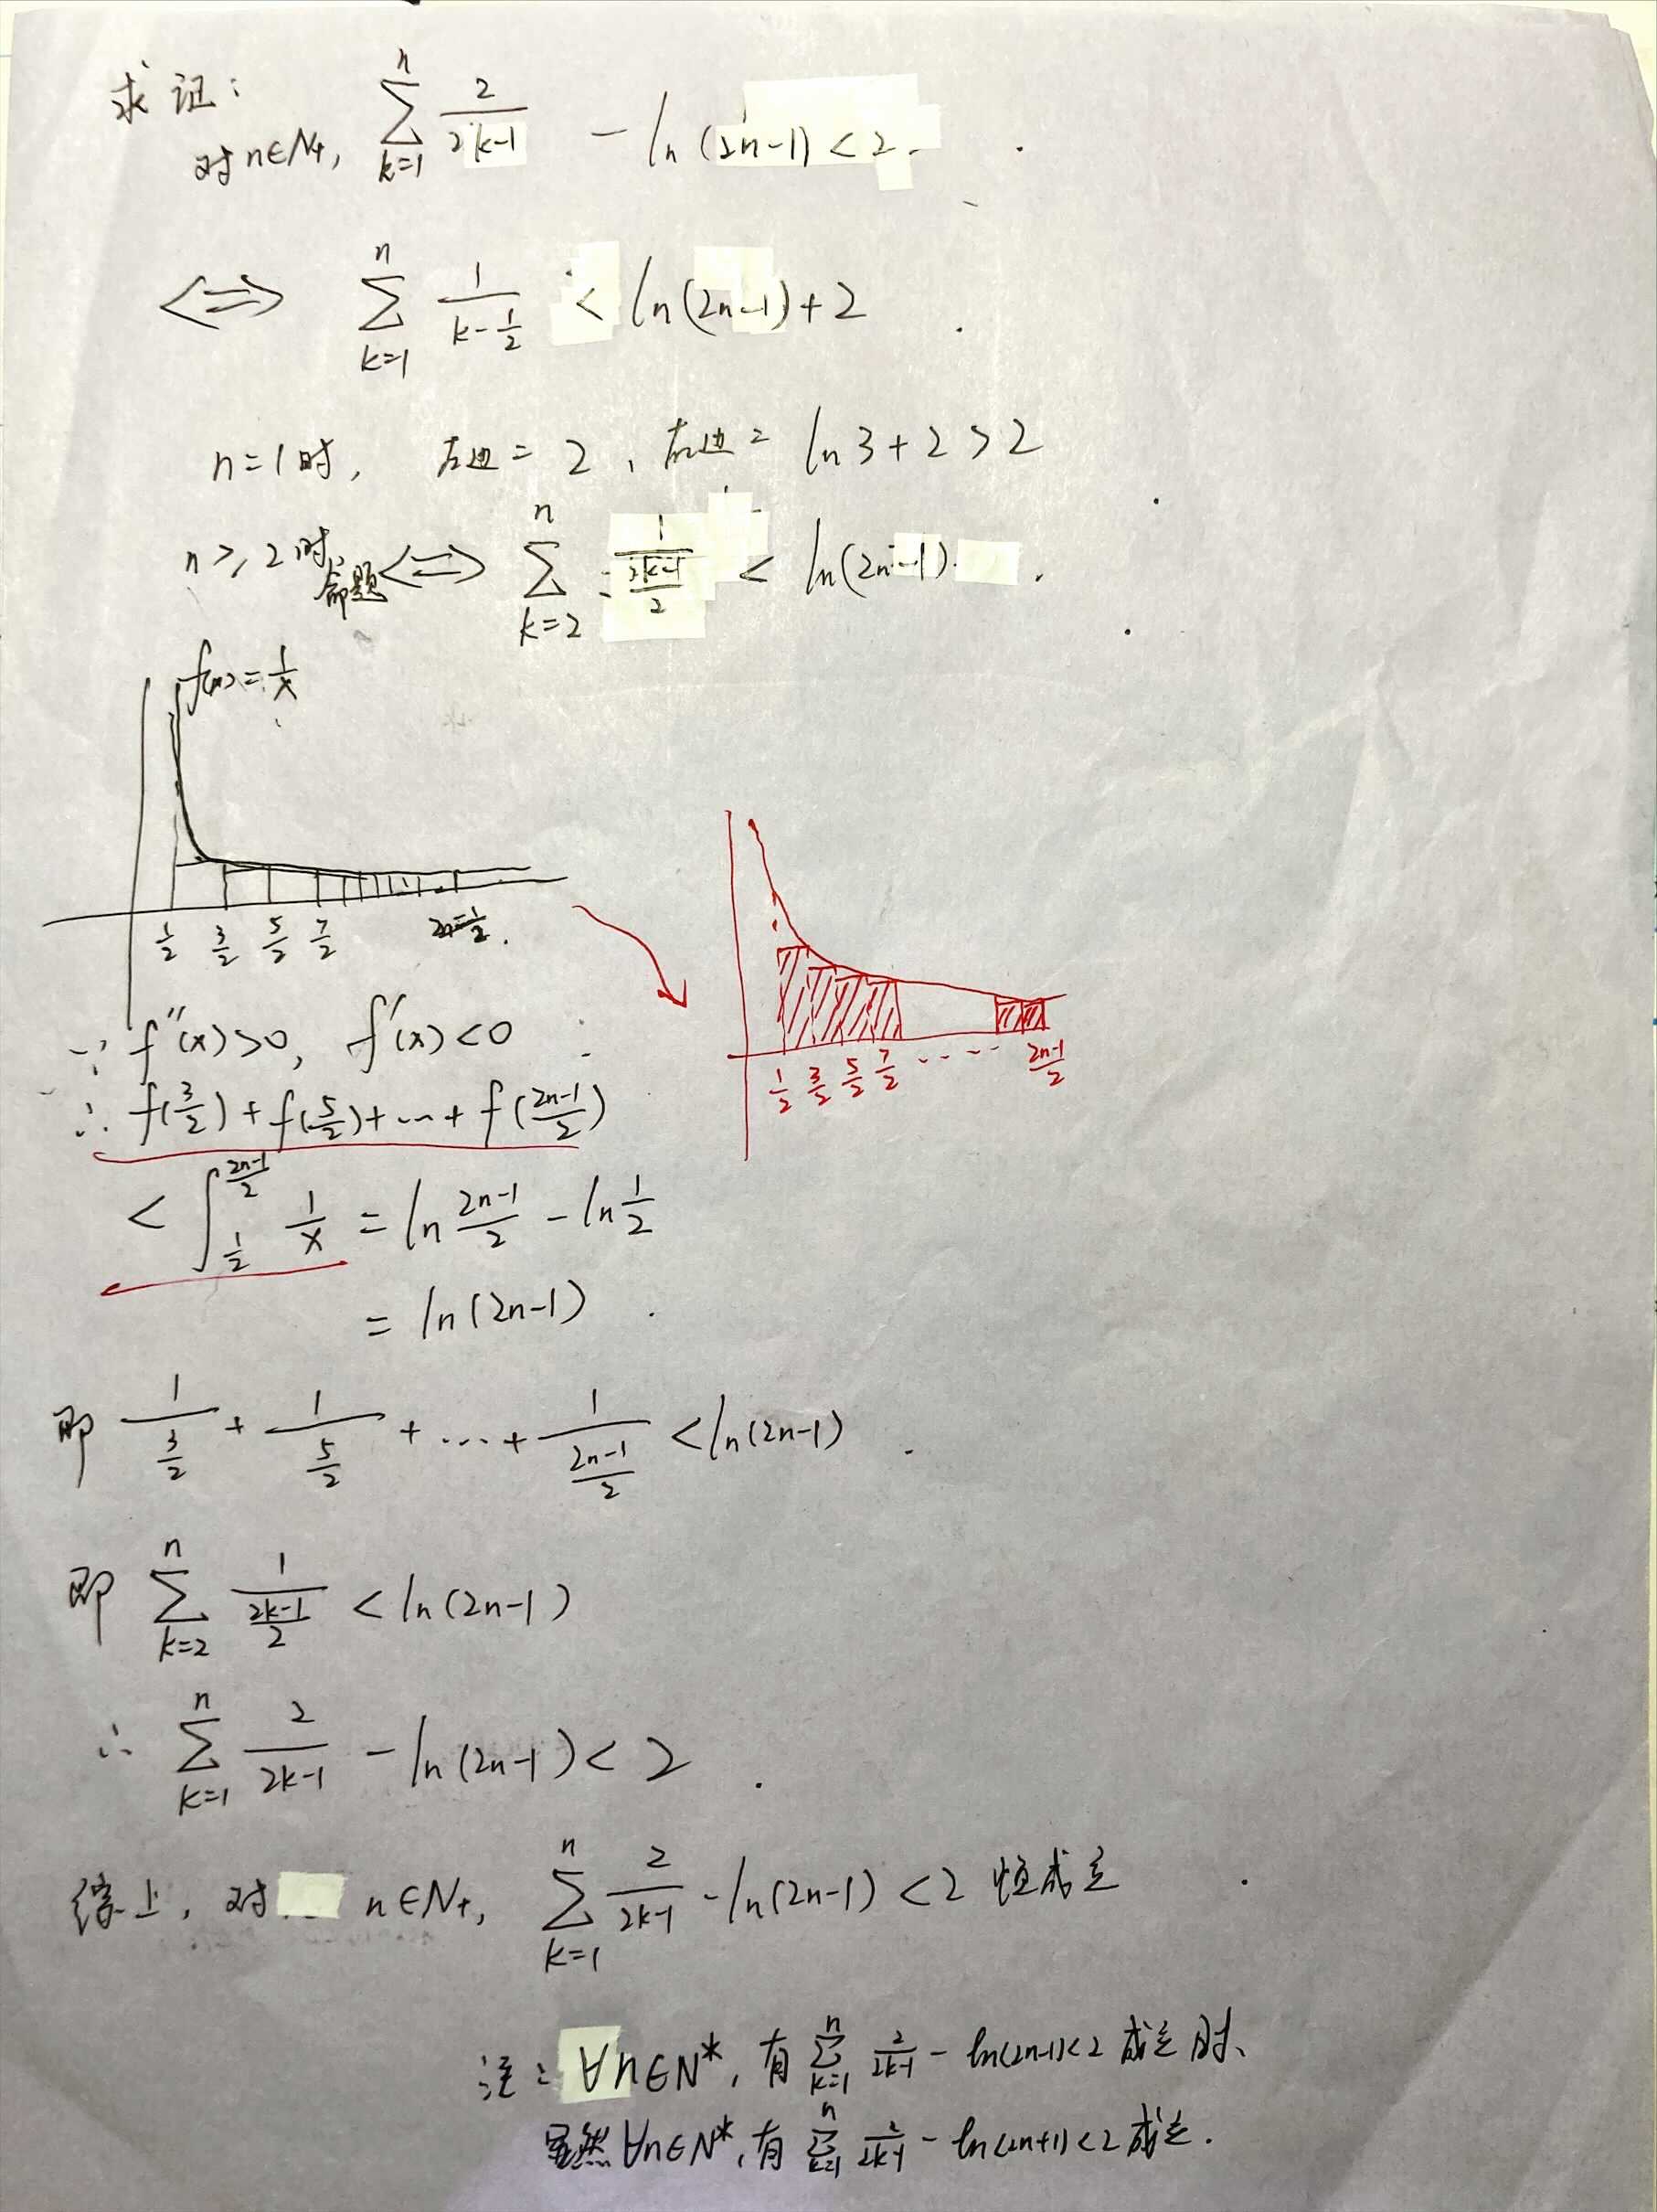 求证:
对n∈N₊, ∑_{k=1}^{n} 2/(2k-1) - ln(2n-1) < 2.
<=> ∑_{k=1}^{n} 1/(k-1/2) < ln(2n-1)+2
n=1时, 左边=2, 右边=ln3+2>2
n≥2时, 命题<=> ∑_{k=2}^{n} 1/((2k-1)/2) < ln(2n-1).
f(x)=1/x
1/2 3/2 5/2 7/2
1/2 3/2 5/2 7/2 ---- (2n-1)/2
∵ f''(x)>0, f'(x)<0
∴ f(3/2)+f(5/2)+…+f((2n-1)/2)
< ∫_{1/2}^{(2n-1)/2} 1/x = ln (2n-1)/2 - ln 1/2
= ln(2n-1)
即 1/(3/2) + 1/(5/2) + … + 1/((2n-1)/2) < ln(2n-1)
即 ∑_{k=2}^{n} 1/((2k-1)/2) < ln(2n-1)
∴ ∑_{k=1}^{n} 2/(2k-1) - ln(2n-1) < 2
综上, 对 n∈N₊, ∑_{k=1}^{n} 2/(2k-1) - ln(2n-1) < 2 恒成立
注: ∀n∈N*, 有 ∑_{k=1}^{n} 2/(2k-1) - ln(2n-1)<2 成立时、
显然∀n∈N*, 有 ∑_{k=1}^{n} 2/(2k-1) - ln(2n+1)<2 成立.